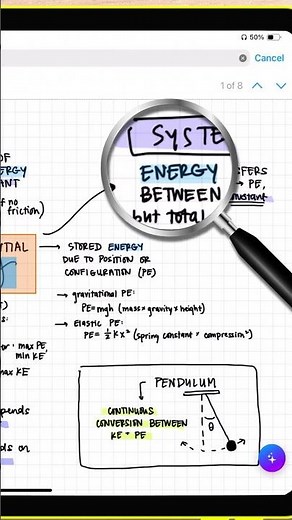 50%
Cancel
1 of 8
OF
ENERGY
ANT
if no
friction)
SYSTE
ENERGY
BETWEEN
but total
FERS
→ PE,
constant
TIAL
→ STORED ENERGY
DUE TO POSITION OR
CONFIGURATION (PE)
→ gravitational PE:
PE=mgh (mass×gravity×height)
→ Elastic PE:
PE = ½ Kx² (spring constant × compression²)
max PE,
min KE
max KE
pends
ds on
PENDULUM
CONTINUOUS
CONVERSION BETWEEN
KE + PE
θ